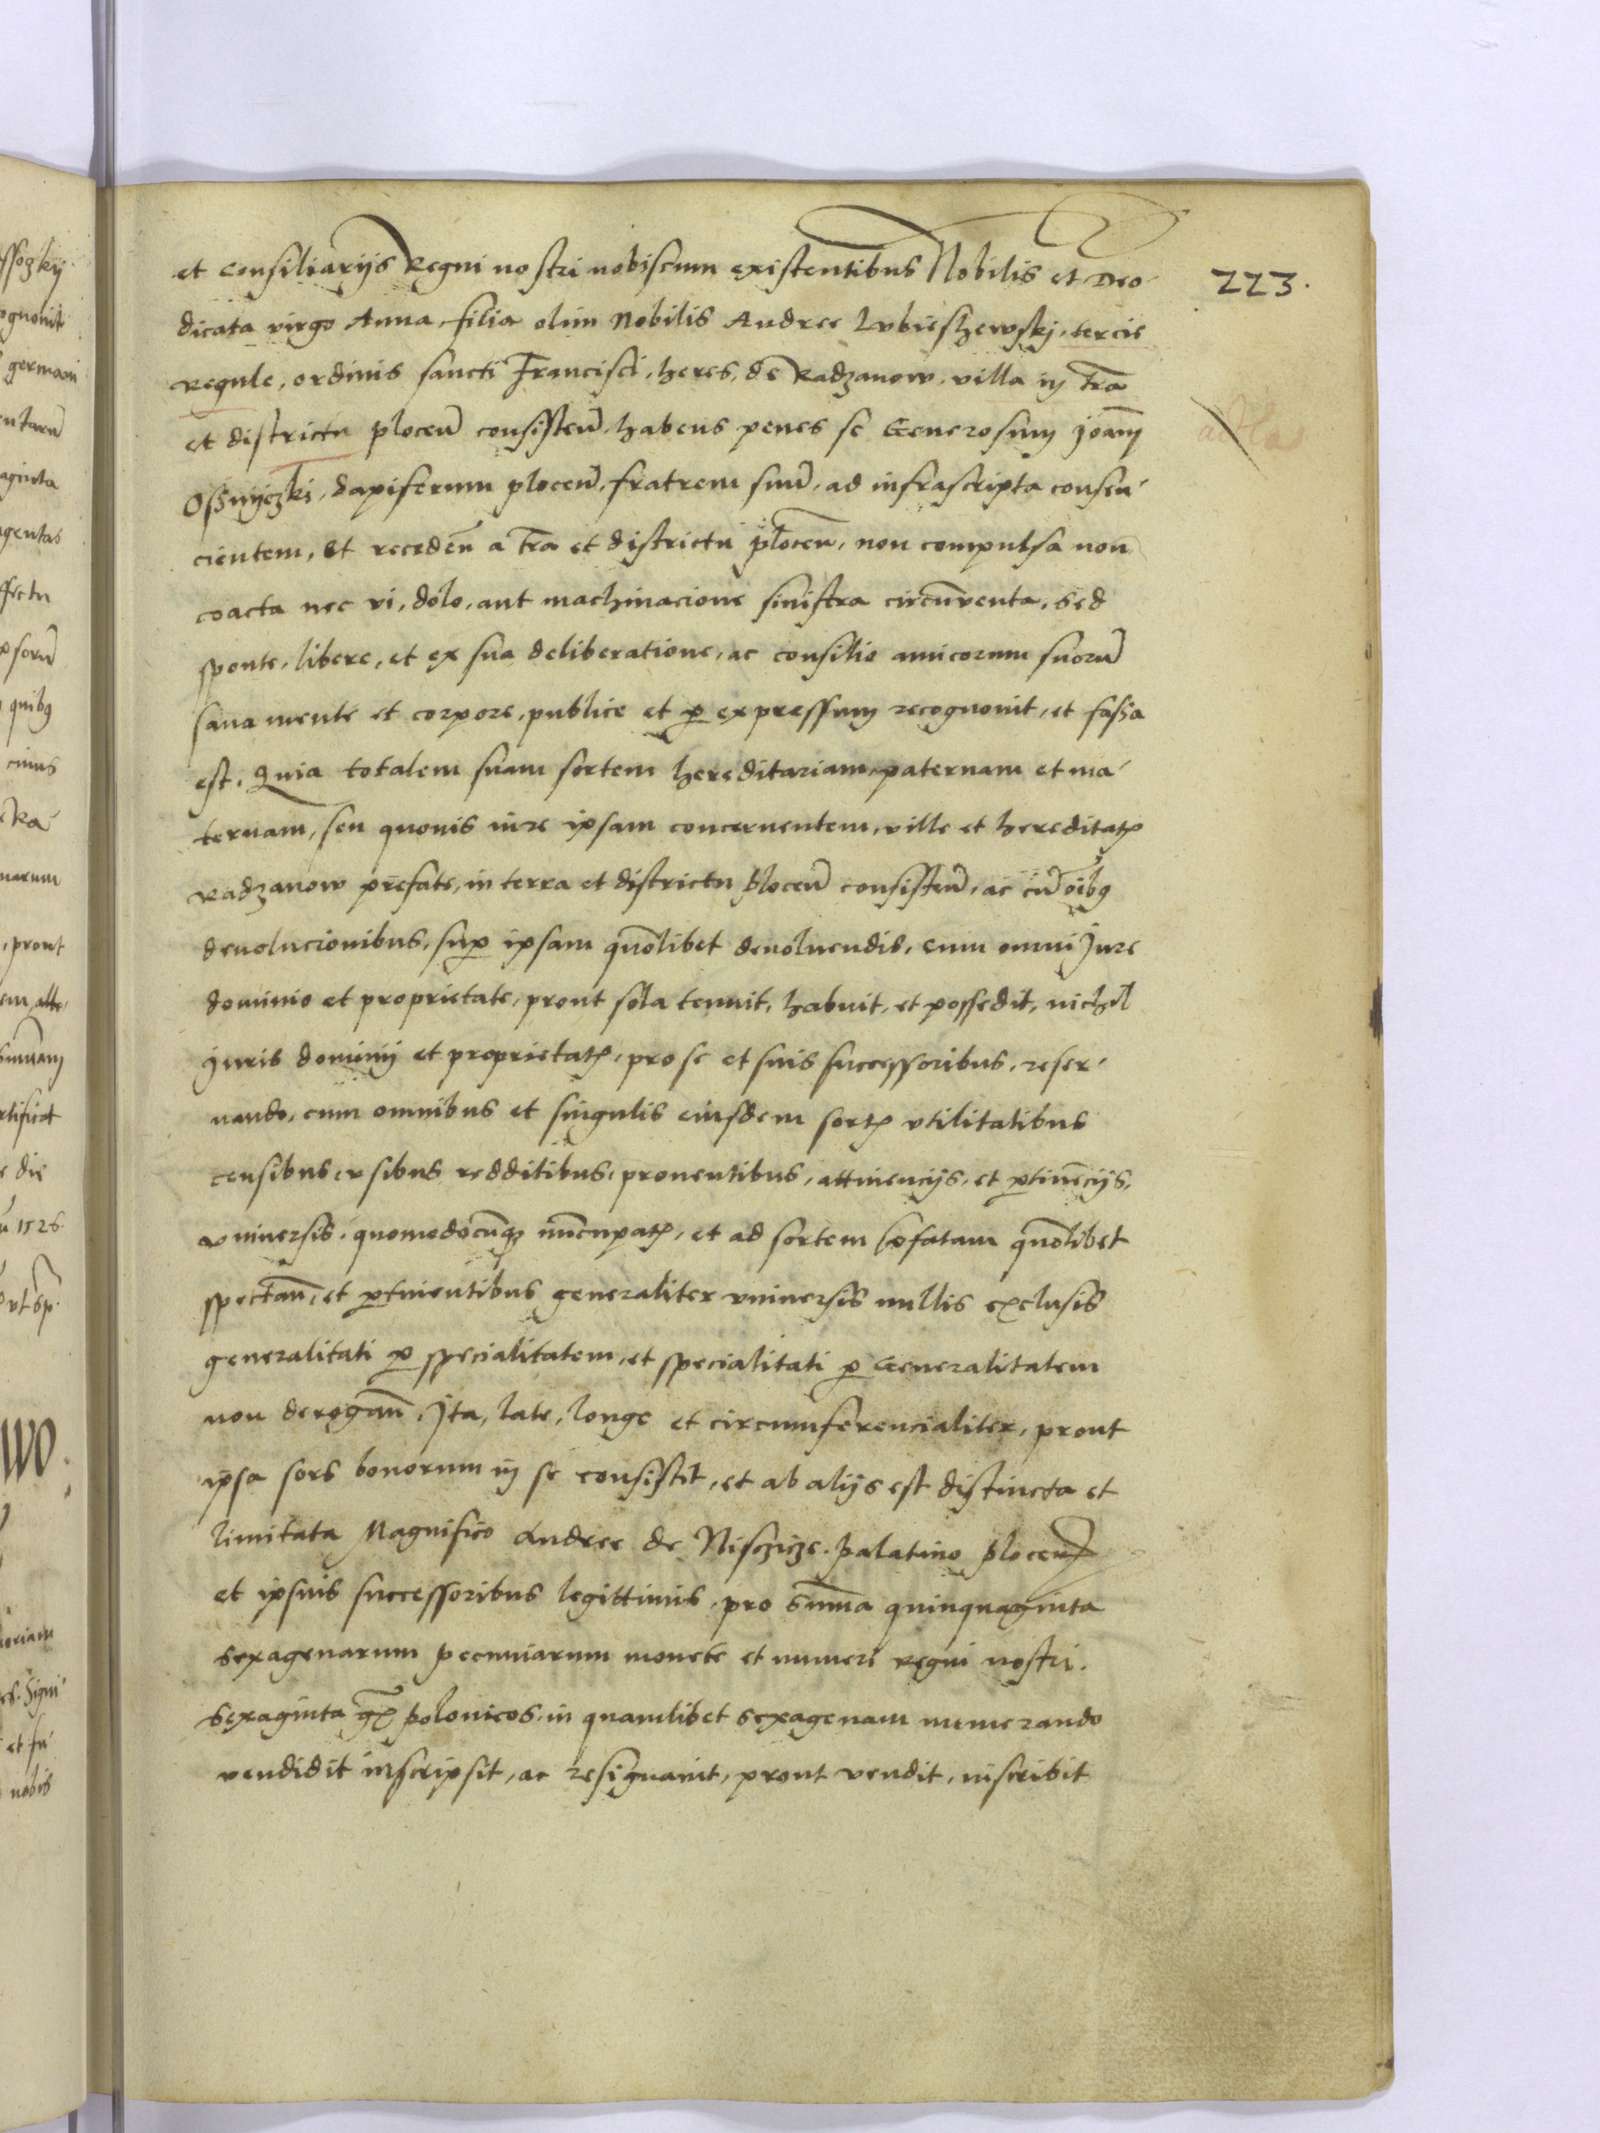 223.
et consiliarijs Regni nostri nobiscum existentibus Nobilis et Deo
dicata virgo Anna filia olim Nobilis Andree Lvbieszewskj, tercie
regule, ordinis sancti Francisci, heres, de Radzanow, villa in tr̃a
et districtu plocen̄ consisten̄, habens penes se Generosum Joan̄em
Ossnyczki, dapiferum plocen̄, fratrem suū, ad infrascripta consen
cientem, et receden̄ a tr̃a et districtu plocen̄, non compulsa non
coacta nec vi, dolo, aut machinacione sinistra circūuenta, sed
sponte, libere, et ex sua deliberatione, ac consilio amicorum suorū
sana mente et corpore, publice et p̱ expressum recognouit, et fassa
est. Quia totalem suam sortem hereditariam, paternam et ma
ternam, seu quouis iure ipsam concernentem, ville et hereditatꝭ
Radzanow prefate, in terra et districtu plocen̄ consisten̄, ac cū oībꝯ
deuolucionibus, sup̱ ipsam quōlibet deuoluendis, cum omni Jure
dominio et proprietate, prout sola tenuit, habuit, et possedit, nichil
Juris dominij et proprietatꝭ, pro se et suis successoribus, reser
uando, cum omnibus et singulis eiusdem sortꝭ vtilitatibus
censibus, vsibus redditibus, prouentibus, attinencijs, et p̱tinēcijs,
vniuersis, quomodocūqꝫ nūcupatꝭ, et ad sortem p̄fatam quōlibet
spectan̄, et p̱tinentibus generaliter vniuersis nullis exclusis
generalitati p̱ specialitatem, et specialitati p̱ Generalitatem
non derogan̄, Jta, late, longe et circumferencialiter, prout
ipsa sors bonorum in se consistit, et ab alijs est distincta et
limitata Magnifico Andree de Nisczicze. palatino plocen̄
et ipsius successoribus legittimis, pro sum̄a quinquaginta
sexagenarum pecuniarum monete et numeri regni nostri.
Sexaginta gꝭ polonicos, in quamlibet sexagenam numerando
vendidit inscripsit, ac resignauit, prout vendit, inscribit